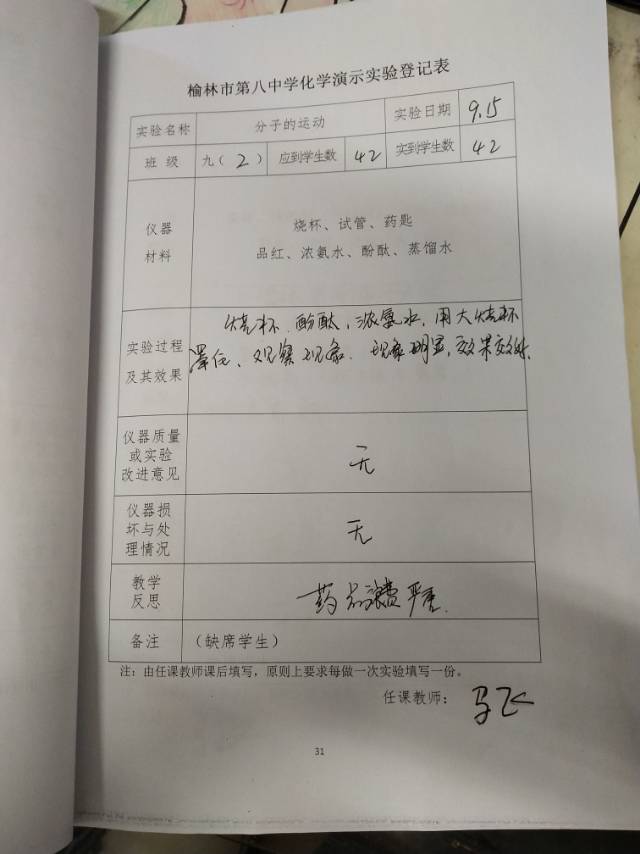 榆林市第八中学化学演示实验登记表
实验名称 分子的运动 实验日期 9.15
班 级 九（ 2 ） 应到学生数 42 实到学生数 42
仪器
材料
烧杯、试管、药匙
品红、浓氨水、酚酞、蒸馏水
实验过程
及其效果
烧杯、酚酞，浓氨水，用大烧杯
罩住、观察现象. 现象明显，效果
仪器质量
或实验
改进意见
无
仪器损
坏与处
理情况
无
教学
反思
药品浪费严重.
备注 （缺席学生）
注：由任课教师课后填写，原则上要求每做一次实验填写一份。
任课教师： 马飞
31